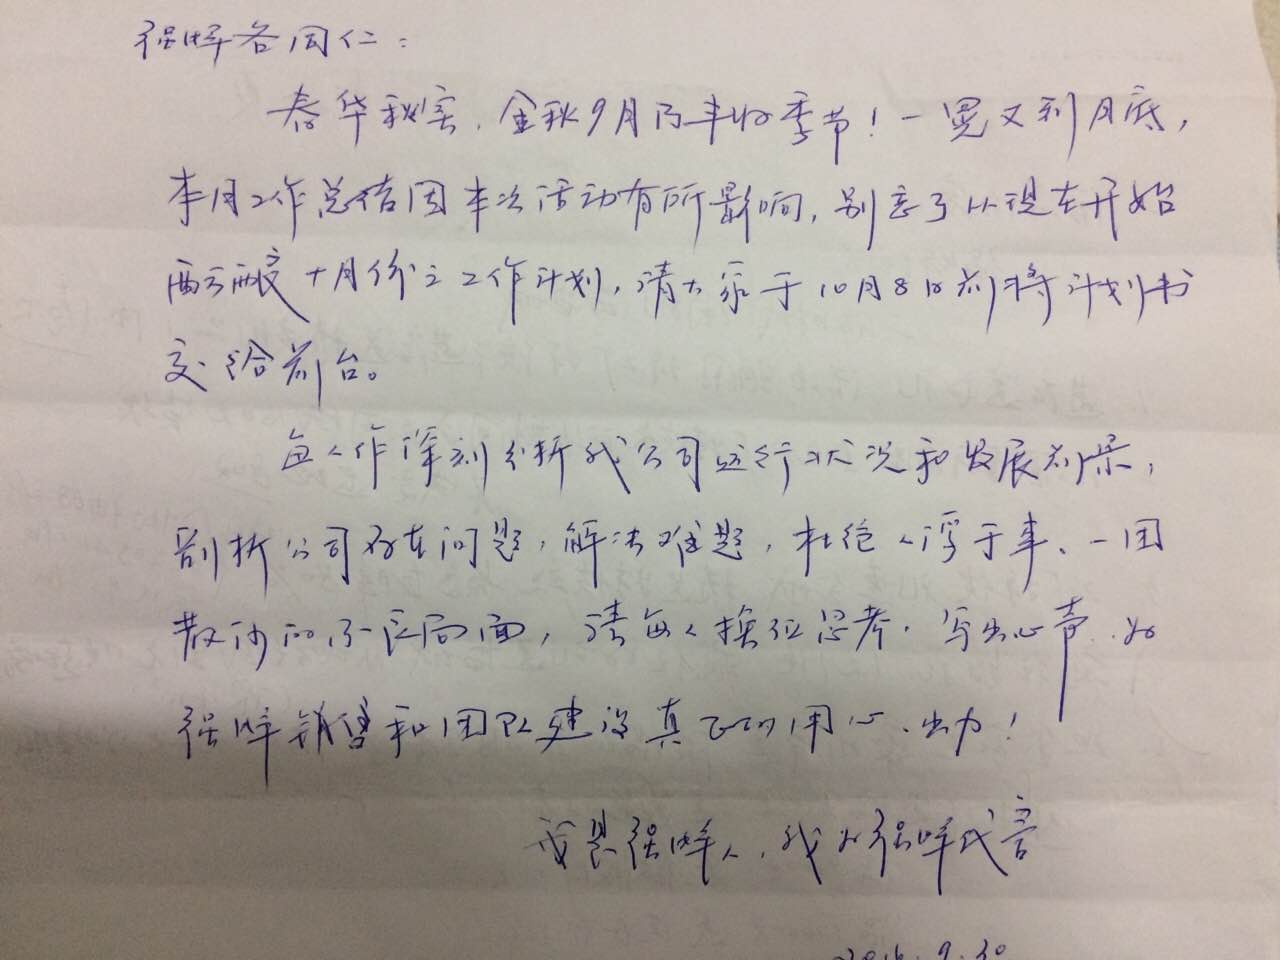 强晔各同仁：
春华秋实，金秋9月乃丰收季节！一晃又到月底，
本月工作总结因本次活动有所影响，别忘了从现在开始
酝酿十月份之工作计划，请大家于10月8日前将计划书
交给前台。
每人作深刻分析我公司运行状况和发展前景，
剖析公司存在问题，解决难题，杜绝人浮于事、一团
散沙的不良局面，请每人换位思考，写出心声，为
强晔销售和团队建设真正的用心、出力！
我是强晔人，我为强晔代言
2016.9.30